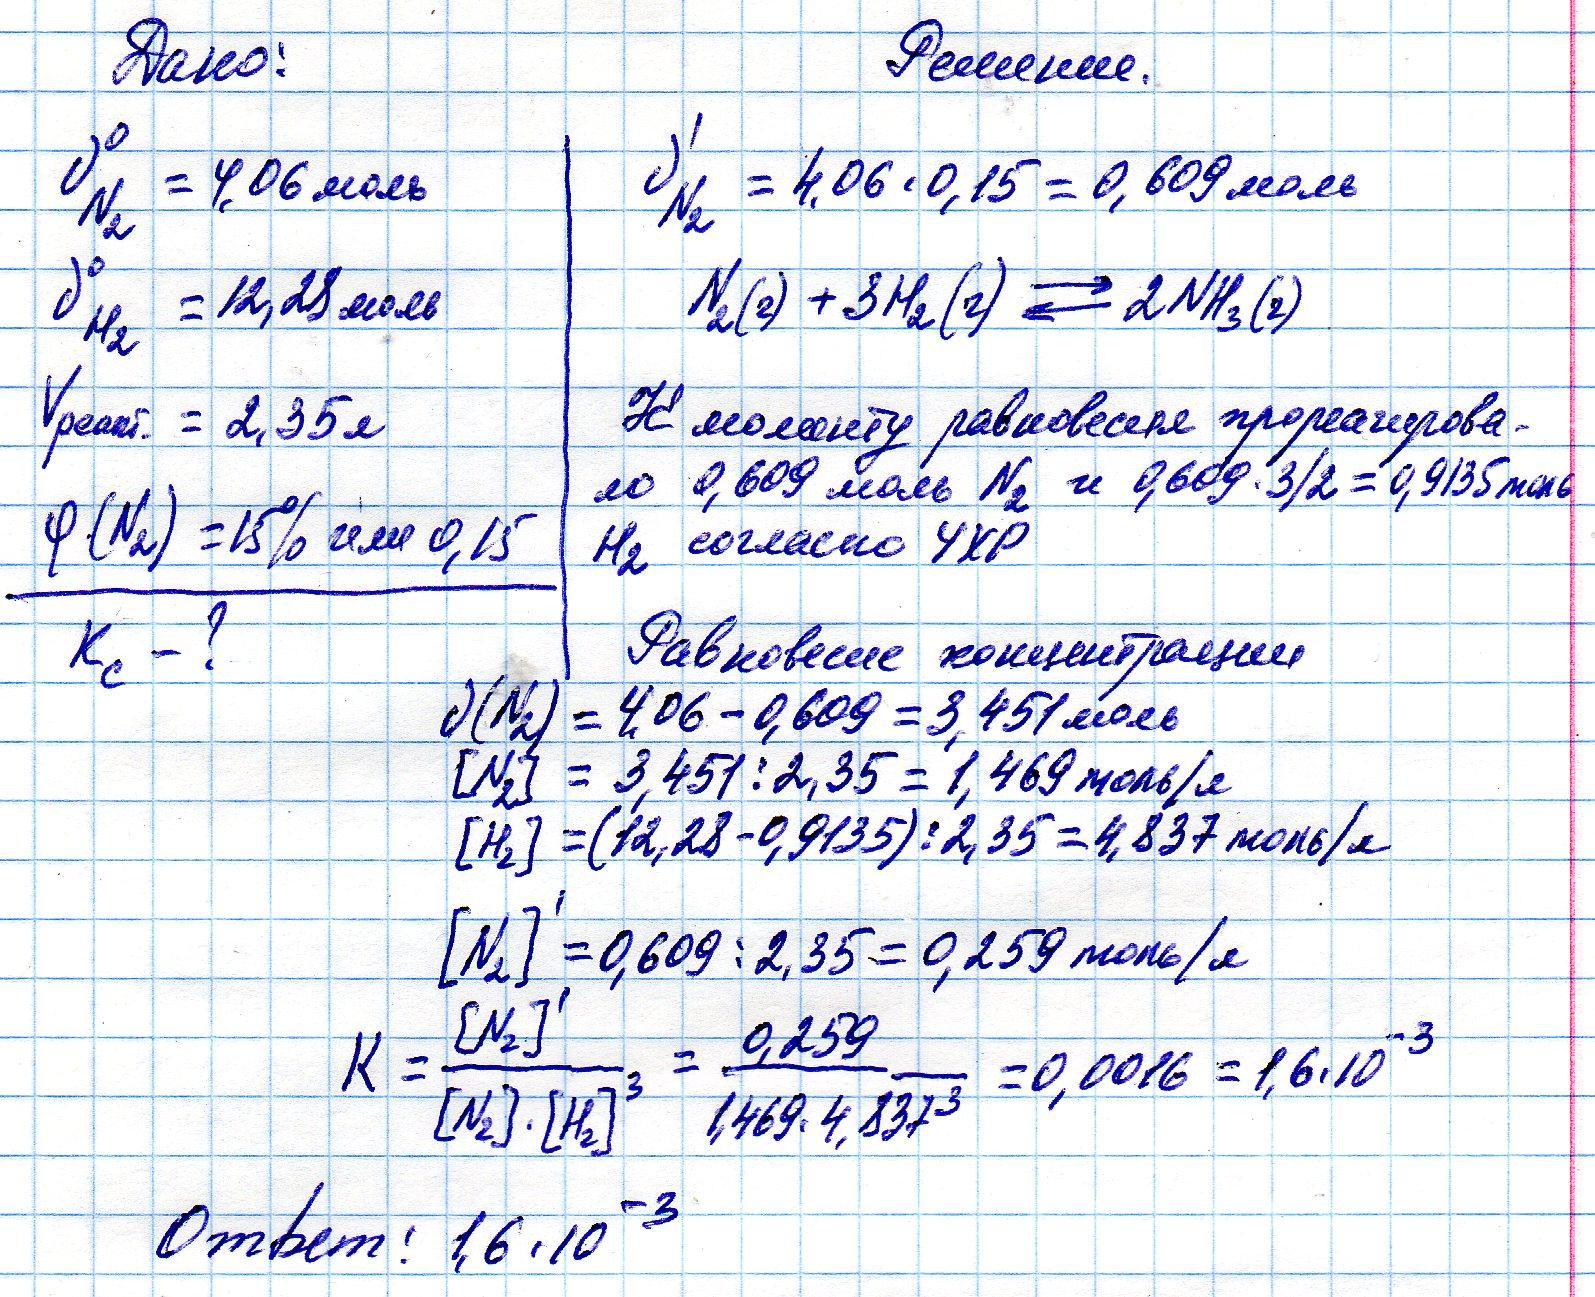 Дано:
ν⁰N₂ = 4,06 моль
ν⁰H₂ = 12,28 моль
Vреакт. = 2,35 л
φ(N₂) = 15% или 0,15
Kc - ?
Решение.
ν'N₂ = 4,06 · 0,15 = 0,609 моль
N₂(г) + 3H₂(г) ⇄ 2NH₃(г)
К моменту равновесия прореагирова-
ло 0,609 моль N₂ и 0,609 · 3/2 = 0,9135 моль
H₂ согласно УХР
Равновесие концентрации
ν(N₂) = 4,06 - 0,609 = 3,451 моль
[N₂] = 3,451 : 2,35 = 1,469 моль/л
[H₂] = (12,28 - 0,9135) : 2,35 = 4,837 моль/л
[N₂]' = 0,609 : 2,35 = 0,259 моль/л
K = [N₂]' / [N₂] · [H₂]³ = 0,259 / 1,469 · 4,837³ = 0,0016 = 1,6 · 10⁻³
Ответ: 1,6 · 10⁻³